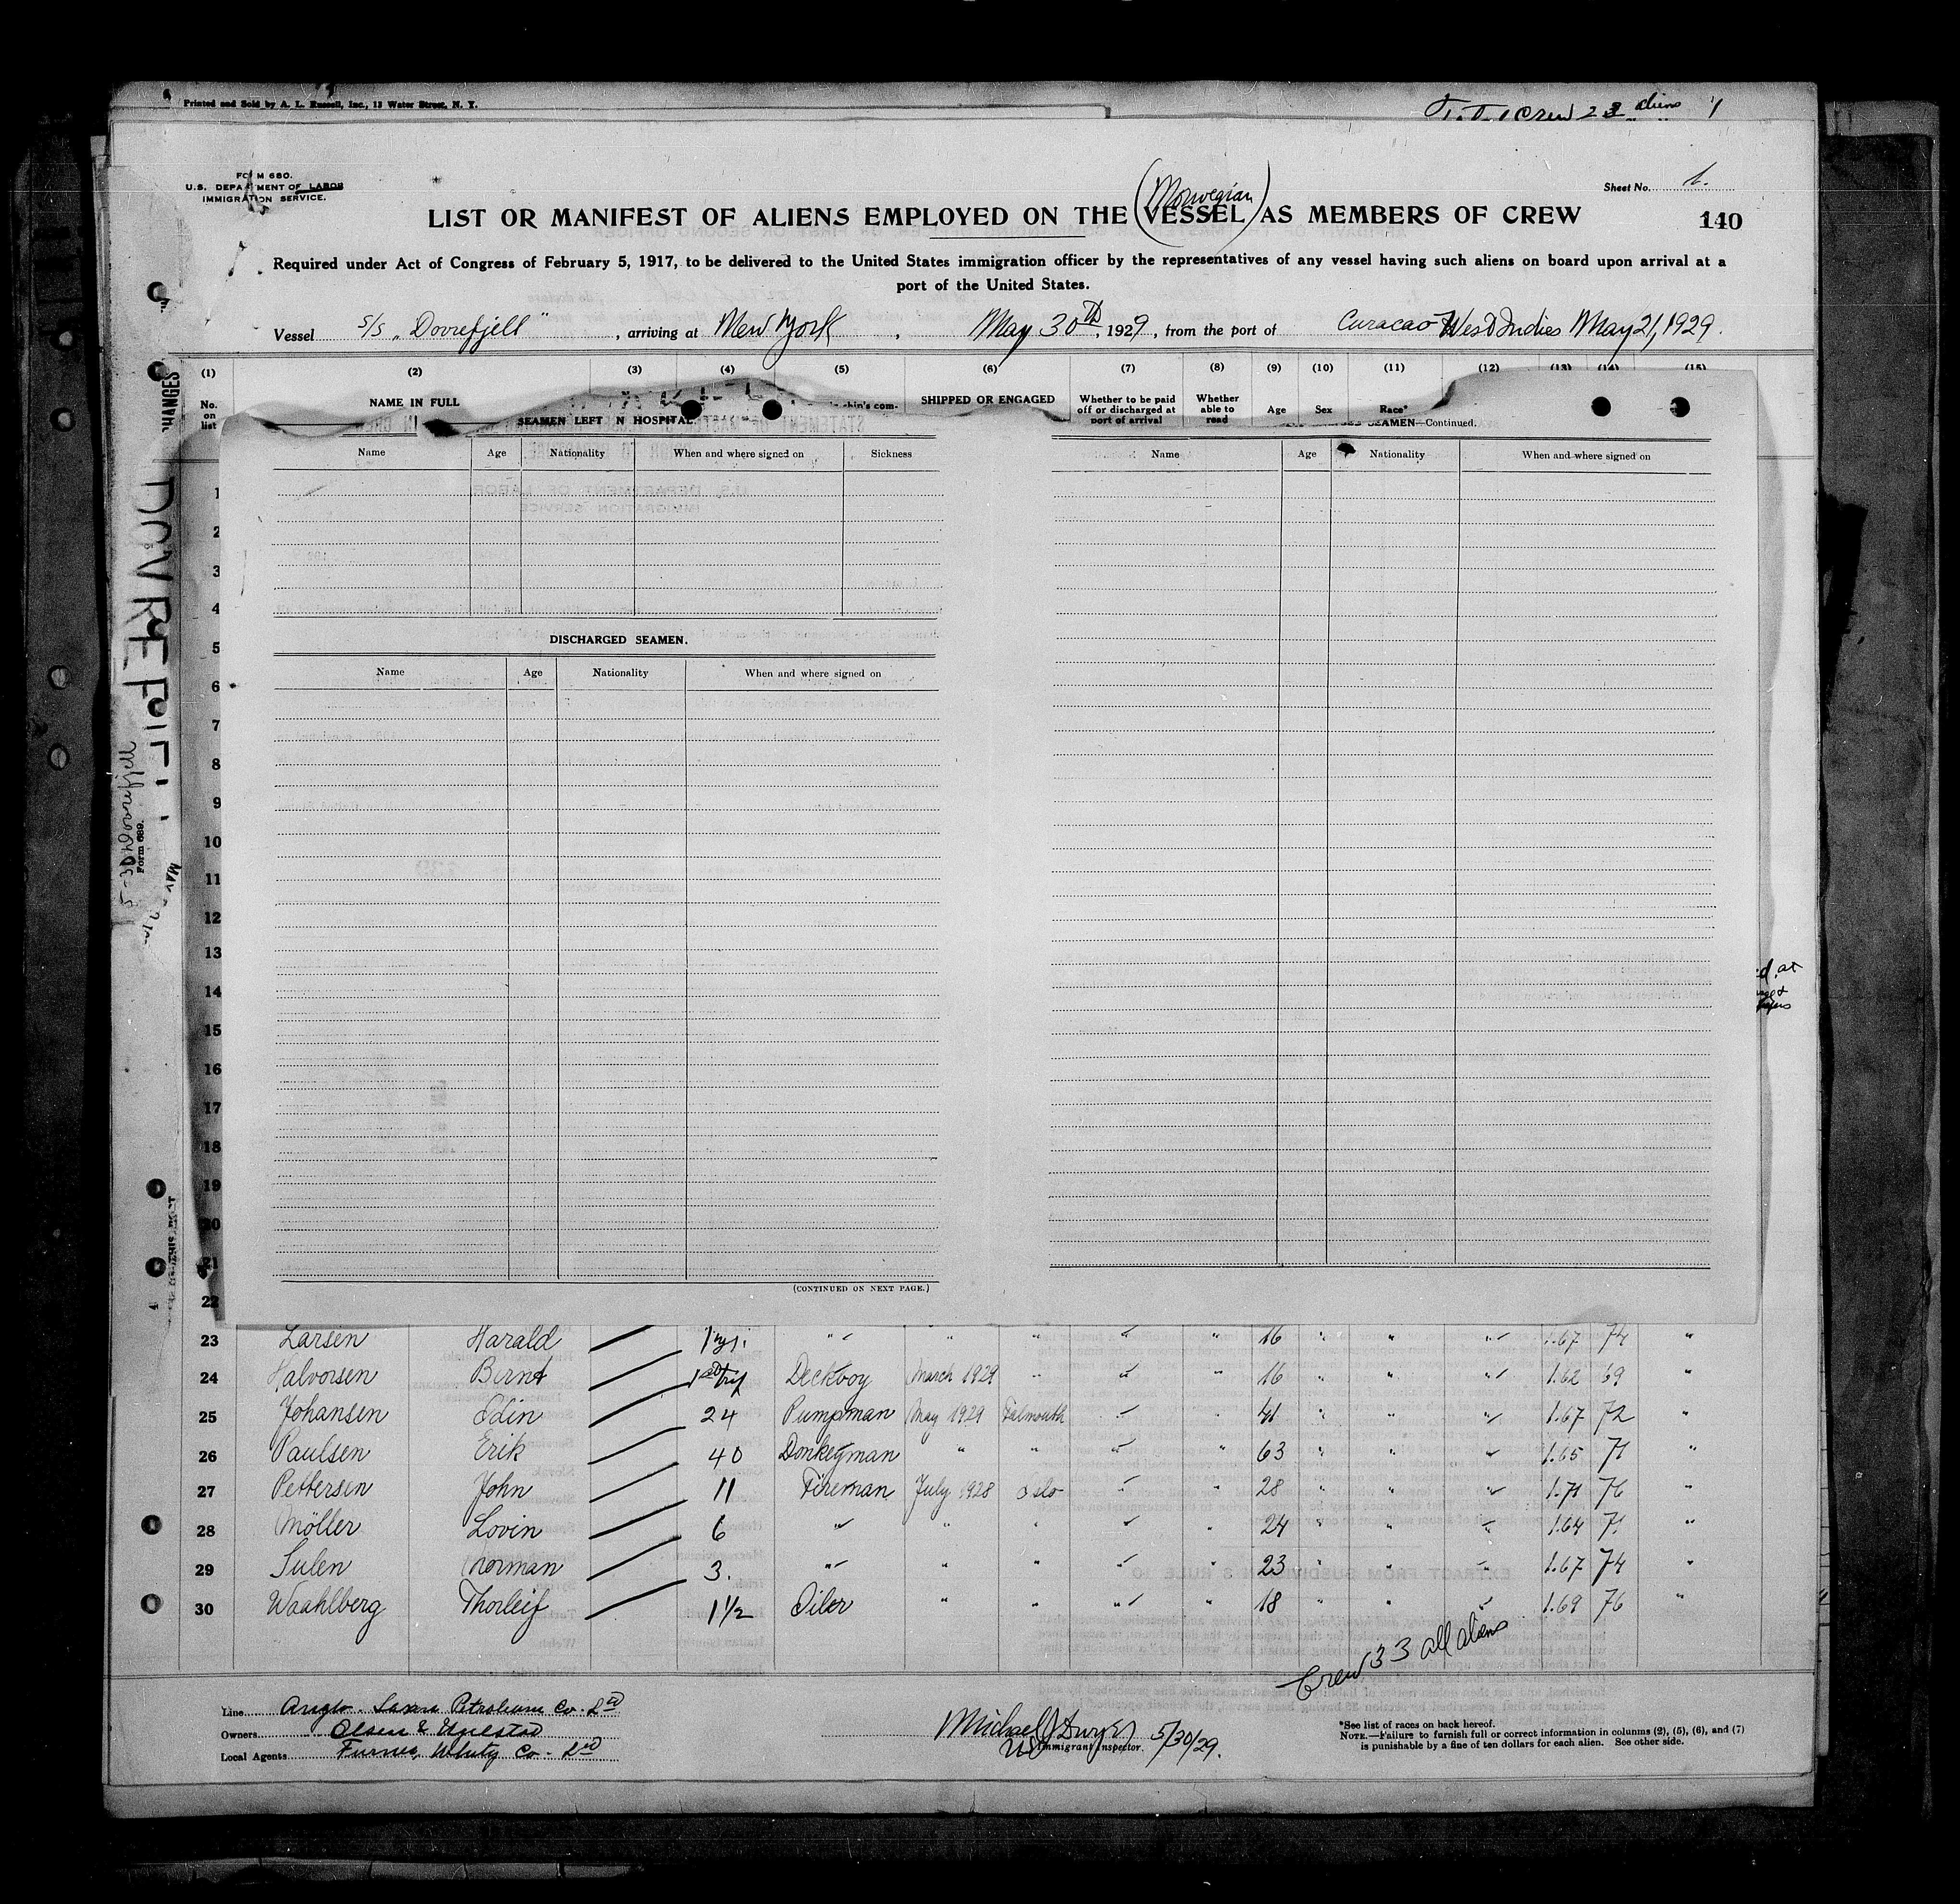 Printed and Sold by A. L. Russell, Inc., 13 Water Street, N. Y.
Crew 23 aliens
FORM 680.
U.S. DEPARTMENT OF LABOR
IMMIGRATION SERVICE.
Sheet No. 1.
(Norwegian)
LIST OR MANIFEST OF ALIENS EMPLOYED ON THE VESSEL AS MEMBERS OF CREW
140
Required under Act of Congress of February 5, 1917, to be delivered to the United States immigration officer by the representatives of any vessel having such aliens on board upon arrival at a
port of the United States.
Vessel S/S „Dovrefjell", arriving at New York, May 30th, 1929, from the port of Curacao West Indies May 21, 1929.
(1) (2) (3) (4) (5) (6) (7) (8) (9) (10) (11) (12) (13) (14) (15)
No. on list
NAME IN FULL
SHIPPED OR ENGAGED
Whether to be paid off or discharged at port of arrival
Whether able to read
Age
Sex
Race*
SEAMEN LEFT IN HOSPITAL.
SEAMEN—Continued.
Name Age Nationality When and where signed on Sickness
Name Age Nationality When and where signed on
DISCHARGED SEAMEN.
Name Age Nationality When and where signed on
(CONTINUED ON NEXT PAGE.)
CHANGES
DOVREFJELL
Form 689.
1
2
3
4
5
6
7
8
9
10
11
12
13
14
15
16
17
18
19
20
21
22
23 Larsen Harald 1 yr. " " " " " 16 " " " 1.67 74 "
24 Halvorsen Bernt 1st trip Deckboy March 1929 " " " 16 " " " 1.62 69 "
25 Johansen Odin 24 Pumpman May 1929 Falmouth " " 41 " " " 1.67 72 "
26 Paulsen Erik 40 Donkeyman " " " " 63 " " " 1.65 71 "
27 Pettersen John 11 Fireman July 1928 Oslo " " 28 " " " 1.71 76 "
28 Möller Lovin 6 " " " " " 24 " " " 1.64 71 "
29 Sulen Norman 3. " " " " " 23 " " " 1.67 74 "
30 Waahlberg Thorleif 1 1/2 Oiler " " " " 18 " " " 1.69 76 "
Crew 33 all aliens
Line Anglo-Saxon Petroleum Co. Ltd
Owners Olsen & Ugelstad
Local Agents Furness, Withy Co. Ltd
Michael J Dwyer 5/30/29.
US Immigrant Inspector.
*See list of races on back hereof.
NOTE.—Failure to furnish full or correct information in columns (2), (5), (6), and (7)
is punishable by a fine of ten dollars for each alien. See other side.